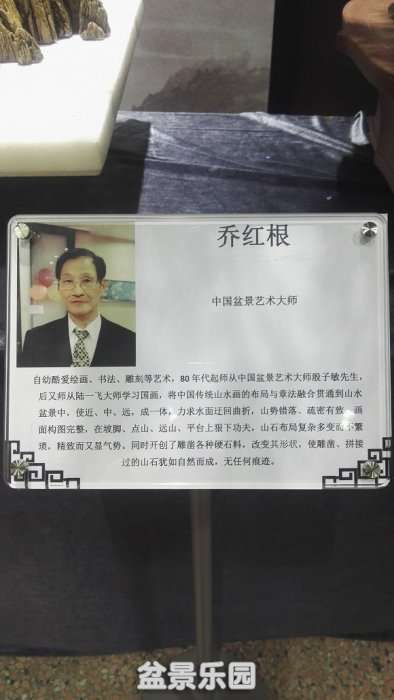 乔红根
中国盆景艺术大师
自幼酷爱绘画、书法、雕刻等艺术，80年代起师从中国盆景艺术大师殷子敏先生，
后又师从陆一飞大师学习国画，将中国传统山水画的布局与章法融合贯通到山水
盆景中，使近、中、远，成一体，力求水面迂回曲折，山势错落、疏密有放，画
面构图完整，在坡脚、点山、远山、平台上狠下功夫，山石布局复杂多变而不繁
琐，精致而又显气势，同时开创了雕凿各种硬石料，改变其形状，使雕凿、拼接
过的山石犹如自然而成，无任何痕迹。
盆景乐园